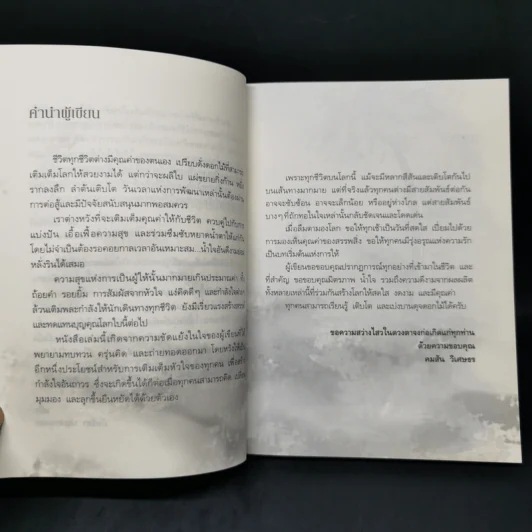 คำนำผู้เขียน
ชีวิตทุกชีวิตต่างมีคุณค่าของตนเอง เปรียบดั่งดอกไม้ที่สามารถ
เติมเต็มโลกให้สวยงามได้ แต่กว่าจะผลิใบ แผ่ขยายกิ่งก้าน
รากลงลึก ลำต้นเติบโต วันเวลาแห่งการพัฒนาเหล่านั้นต้องผ่าน
การต่อสู้และมีปัจจัยสนับสนุนมากพอสมควร
เราต่างหวังที่จะเติมเต็มคุณค่าให้กับชีวิต ควบคู่ไปกับการ
แบ่งปัน เอื้อเฟื้อความสุข และร่วมซึมซับหยาดน้ำตาให้แก่กัน
โดยไม่จำเป็นต้องรอคอยกาลเวลาอันเหมาะสม...น้ำใจอันดีงามย่อม
หลั่งรินได้เสมอ
ความสุขแห่งการเป็นผู้ให้นั้นมากมายเกินประมาณค่า ทั้ง
ถ้อยคำ รอยยิ้ม การสัมผัสจากหัวใจ แง่คิดดีๆ และกำลังใจ
ล้วนเติมพละกำลังให้นักเดินทางทุกชีวิต ยังมีเรี่ยวแรงสร้างสรรค์
และทดแทนบุญคุณโลกใบนี้ต่อไป
หนังสือเล่มนี้เกิดจากความชัดแจ้งในใจของผู้เขียนที่
พยายามทบทวน ครุ่นคิด และถ่ายทอดออกมา โดยหวังให้เป็น
อีกหนึ่งประโยชน์สำหรับการเติมเต็มหัวใจของทุกคน เพื่อสร้าง
กำลังใจอันถาวร ซึ่งจะเกิดขึ้นได้ก็ต่อเมื่อทุกคนสามารถคิด เปลี่ยน
มุมมอง และลุกขึ้นยืนหยัดได้ด้วยตัวเอง
เพราะทุกชีวิตบนโลกนี้ แม้จะมีหลากสีสันและเติบโตกันไป
บนเส้นทางมากมาย แต่ที่จริงแล้วทุกคนต่างมีสายสัมพันธ์ต่อกัน
อาจจะซับซ้อน อาจจะเล็กน้อย หรืออยู่ห่างไกล แต่สายสัมพันธ์
บางๆ ที่ถักทอในใจเหล่านั้นกลับชัดเจนและโดดเด่น
เมื่อลืมตามองโลก ขอให้ทุกเช้าเป็นวันที่สดใส เปี่ยมไปด้วย
การมองเห็นคุณค่าของสรรพสิ่ง ขอให้ทุกคนมีรุ่งอรุณแห่งความรัก
เป็นบทเริ่มต้นแห่งการให้
ผู้เขียนขอขอบคุณปรากฏการณ์ทุกอย่างที่เข้ามาในชีวิต และ
ที่สำคัญ ขอขอบคุณมิตรภาพ น้ำใจ รวมถึงความดีงามจากผองมิตร
ทั้งหลายเหล่านี้ที่ร่วมกันสร้างโลกให้สดใส งดงาม และมีคุณค่า
ทุกคนสามารถเรียนรู้ เติบโต และเบ่งบานดุจดอกไม้ได้ครับ
ขอความสว่างไสวในดวงตาจงก่อเกิดแก่ทุกท่าน
ด้วยความขอบคุณ
คมสัน วิเศษธร